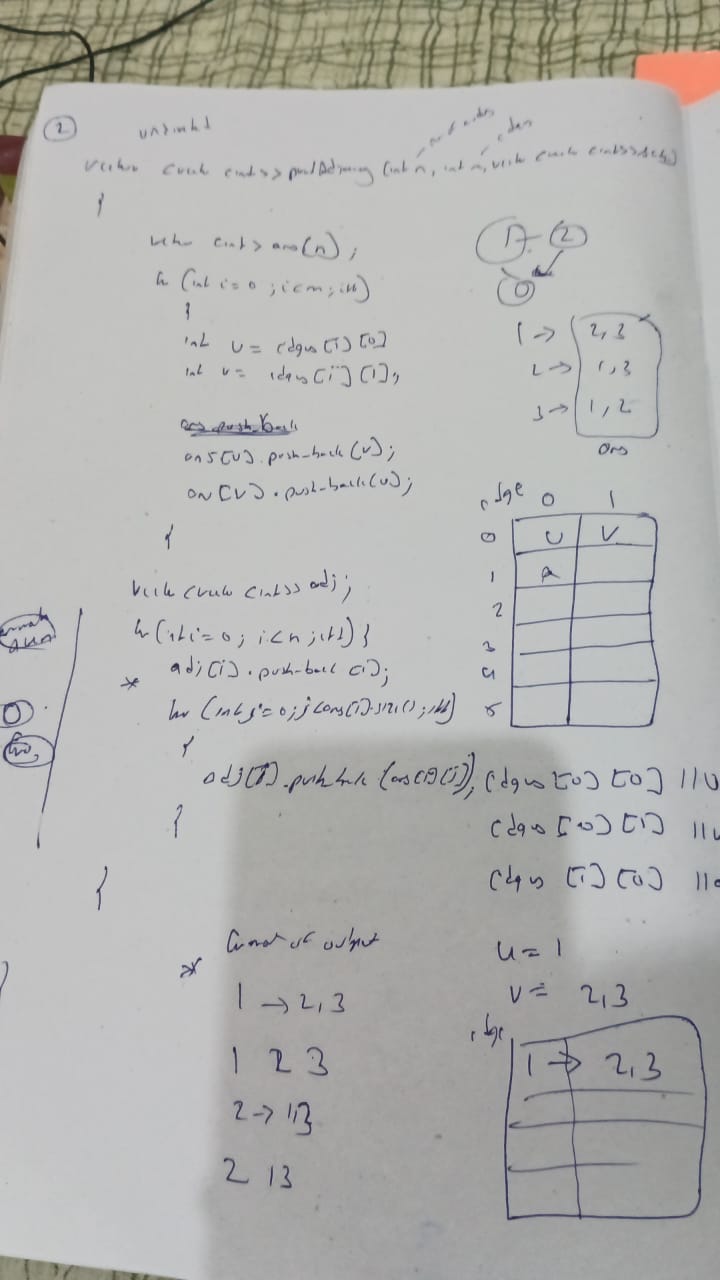 ②
vector <vector <int>> printAdjacency (int n, int m, vector <vector <int>>& edges)
{
vector <int> ans(n);
for (int i=0; i<m; i++)
{
int u = edges[i][0]
int v = edges[i][1];
ans.push_back
ans[u].push_back(v);
ans[v].push_back(u);
}
vector <vector <int>> adj;
for (int i=0; i<n; i++) {
* adj[i].push_back(i);
for (int j=0; j<ans[i].size(); j++)
{
adj[i].push_back(ans[i][j]);
}
}
* format of output
1 → 2,3
1 2 3
2 → 1,3
2 1 3
1 2
0
1 → 2, 3
2 → 1, 3
3 → 1, 2
ans
edge 0 1
0 U V
1
2
3
4
5
edges [0] [0] // U
edges [0] [1] // V
edges [1] [0] //
u = 1
v = 2,3
edge
1 → 2,3